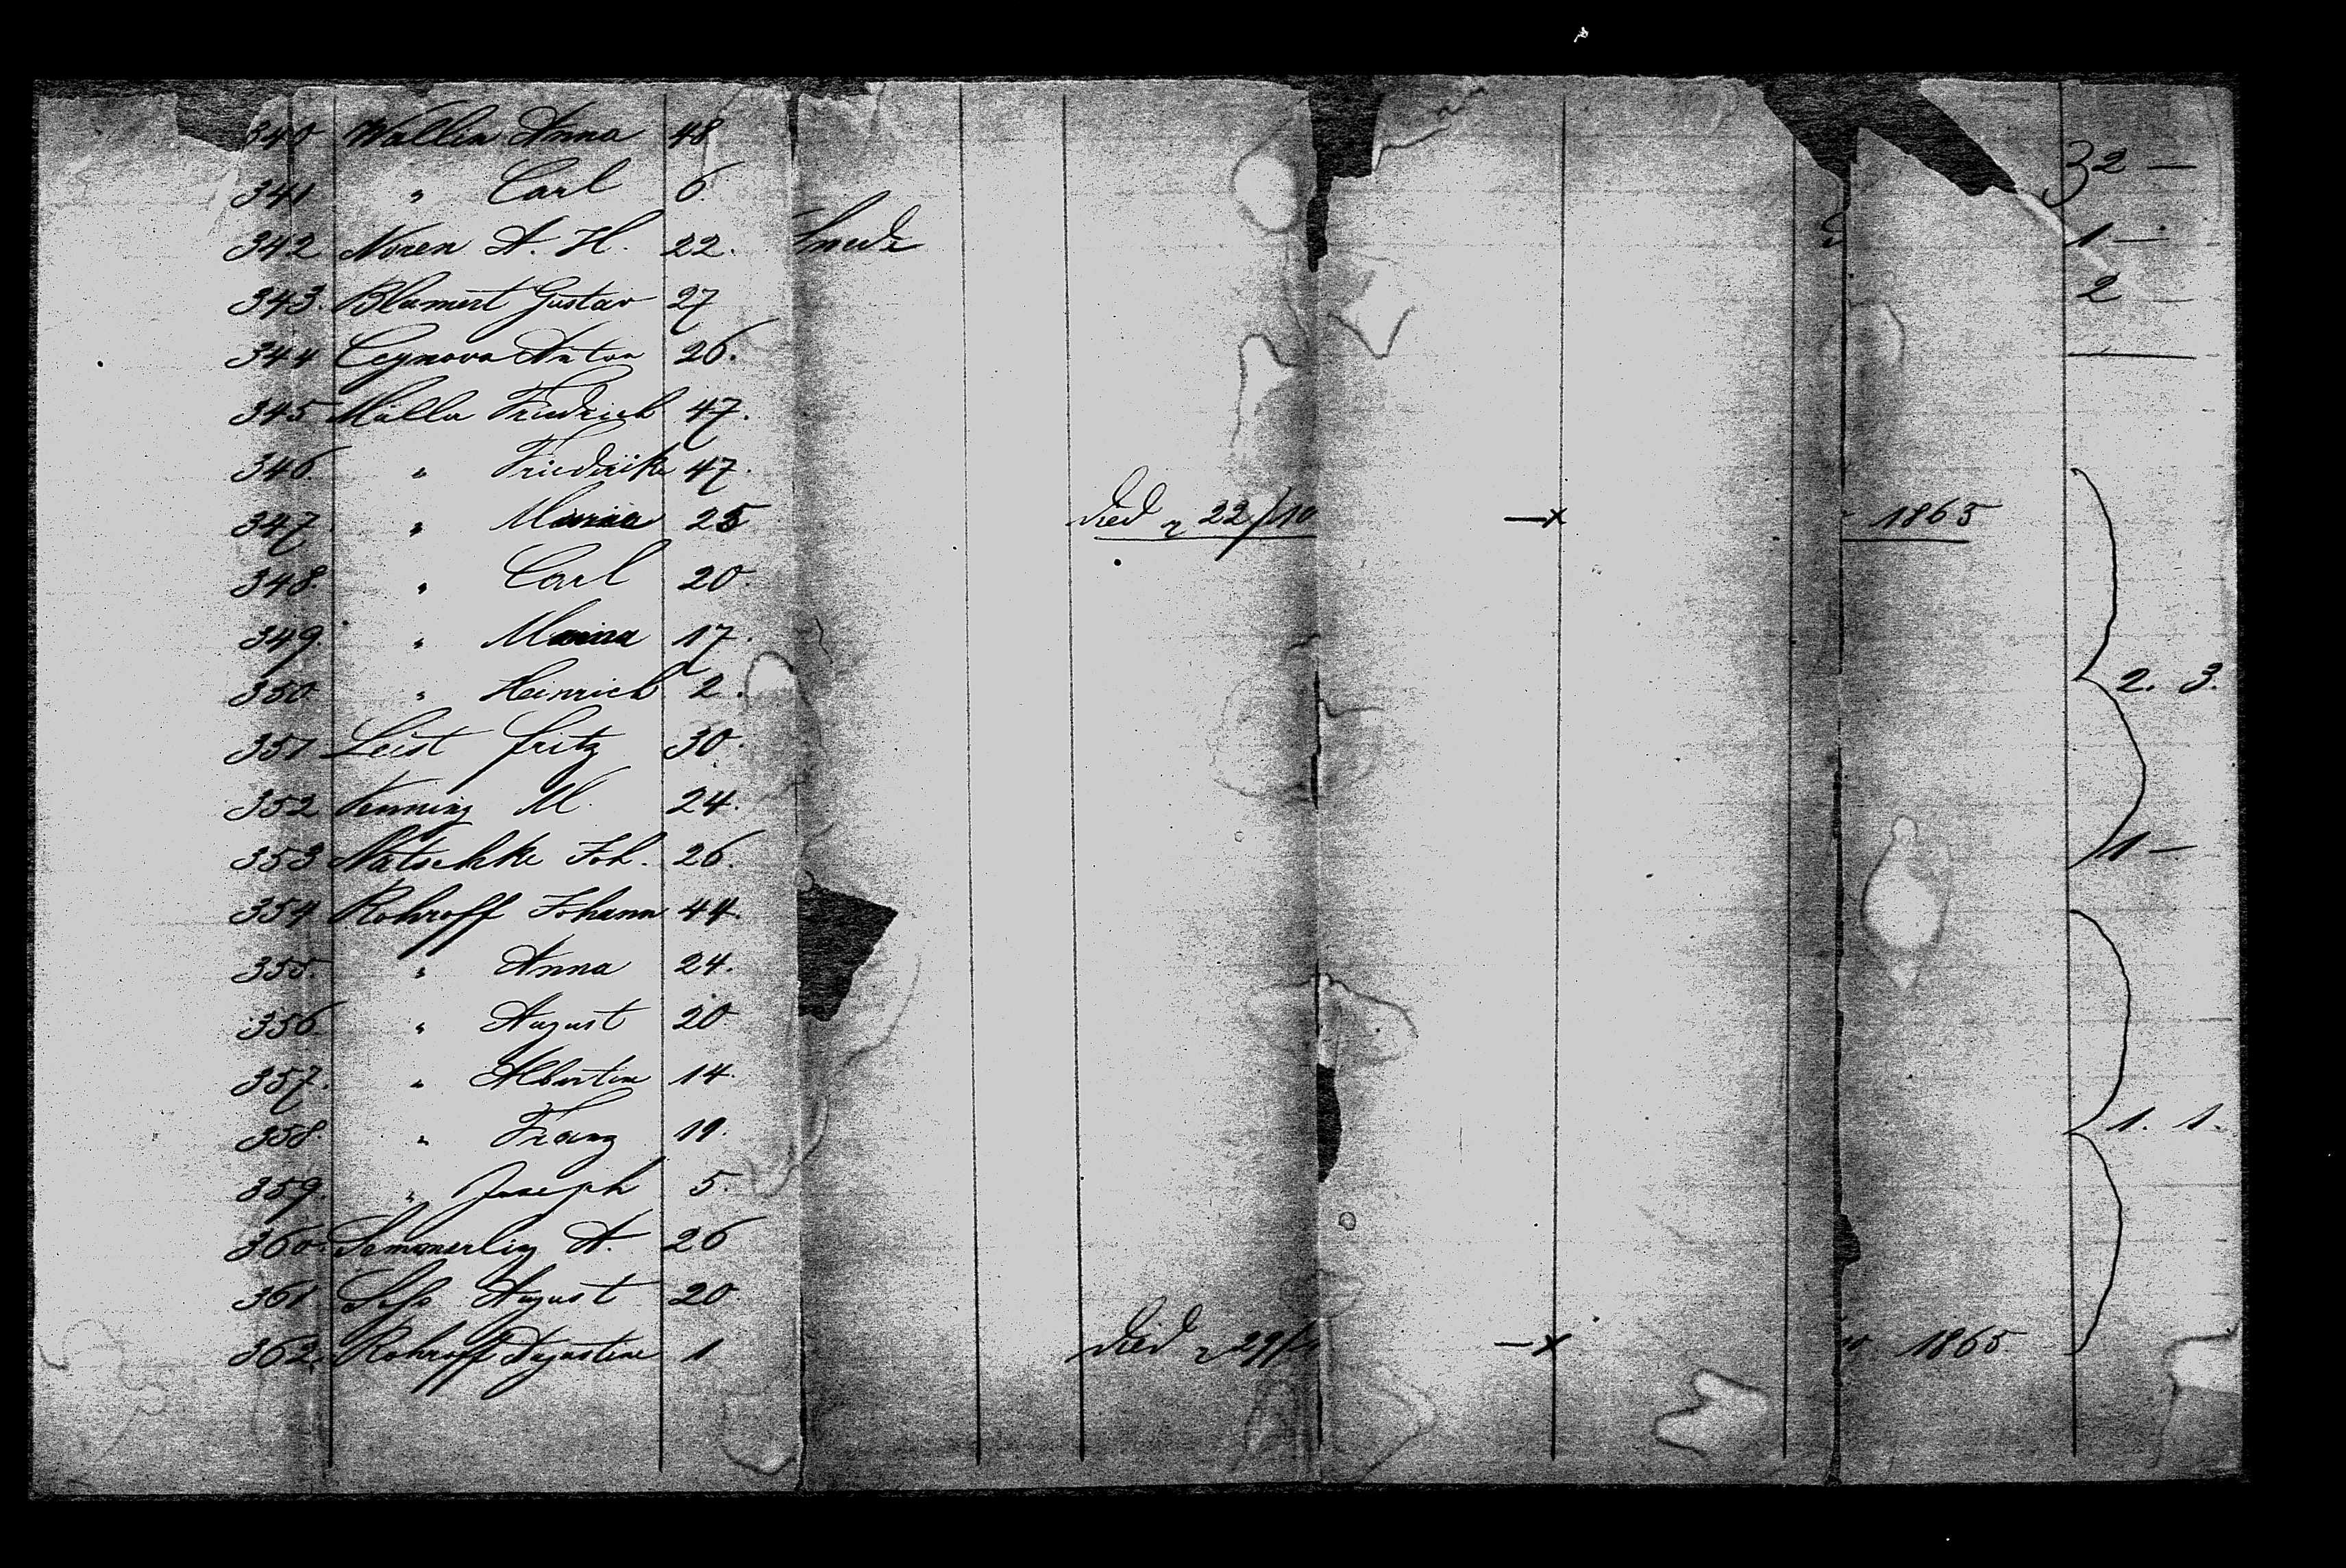 340 Wallin Anna 48 32 —
341 " Carl 6.
342 Noren A. H. 22. 1 —
343. Blumert Gustav 27 2 —
344 Ceynova Anton 26. —
345 Friedrich 47.
346. " Friederike 47.
347 " 25 died 22/10 —x 1865
348. " Carl 20.
349. " 17.
350. " Heinrich 2. 2. 3.
351 Leist Fritz 30.
352 M. 24.
353 Natschke Joh. 26. 1 —
354 Rohroff Johann 44.
355. " Anna 24.
356. " August 20
357. " Albertine 14.
358. " Franz 11. 1. 1.
359. " Joseph 5.
360. Sommerling A. 26
361 August 20.
362. Rohroff 1 died 29/ —x 1865